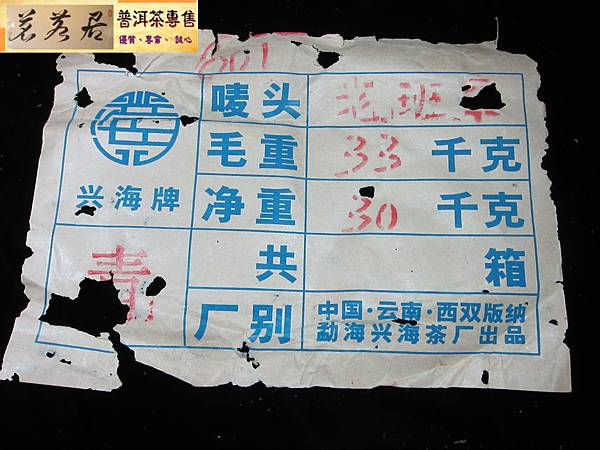 茗茗居
普洱茶專售
優質、專業、誠心
601
唛头 老班章
毛重 33 千克
兴海牌
净重 30 千克
青
共 箱
厂别
中国·云南·西双版纳
勐海兴海茶厂出品